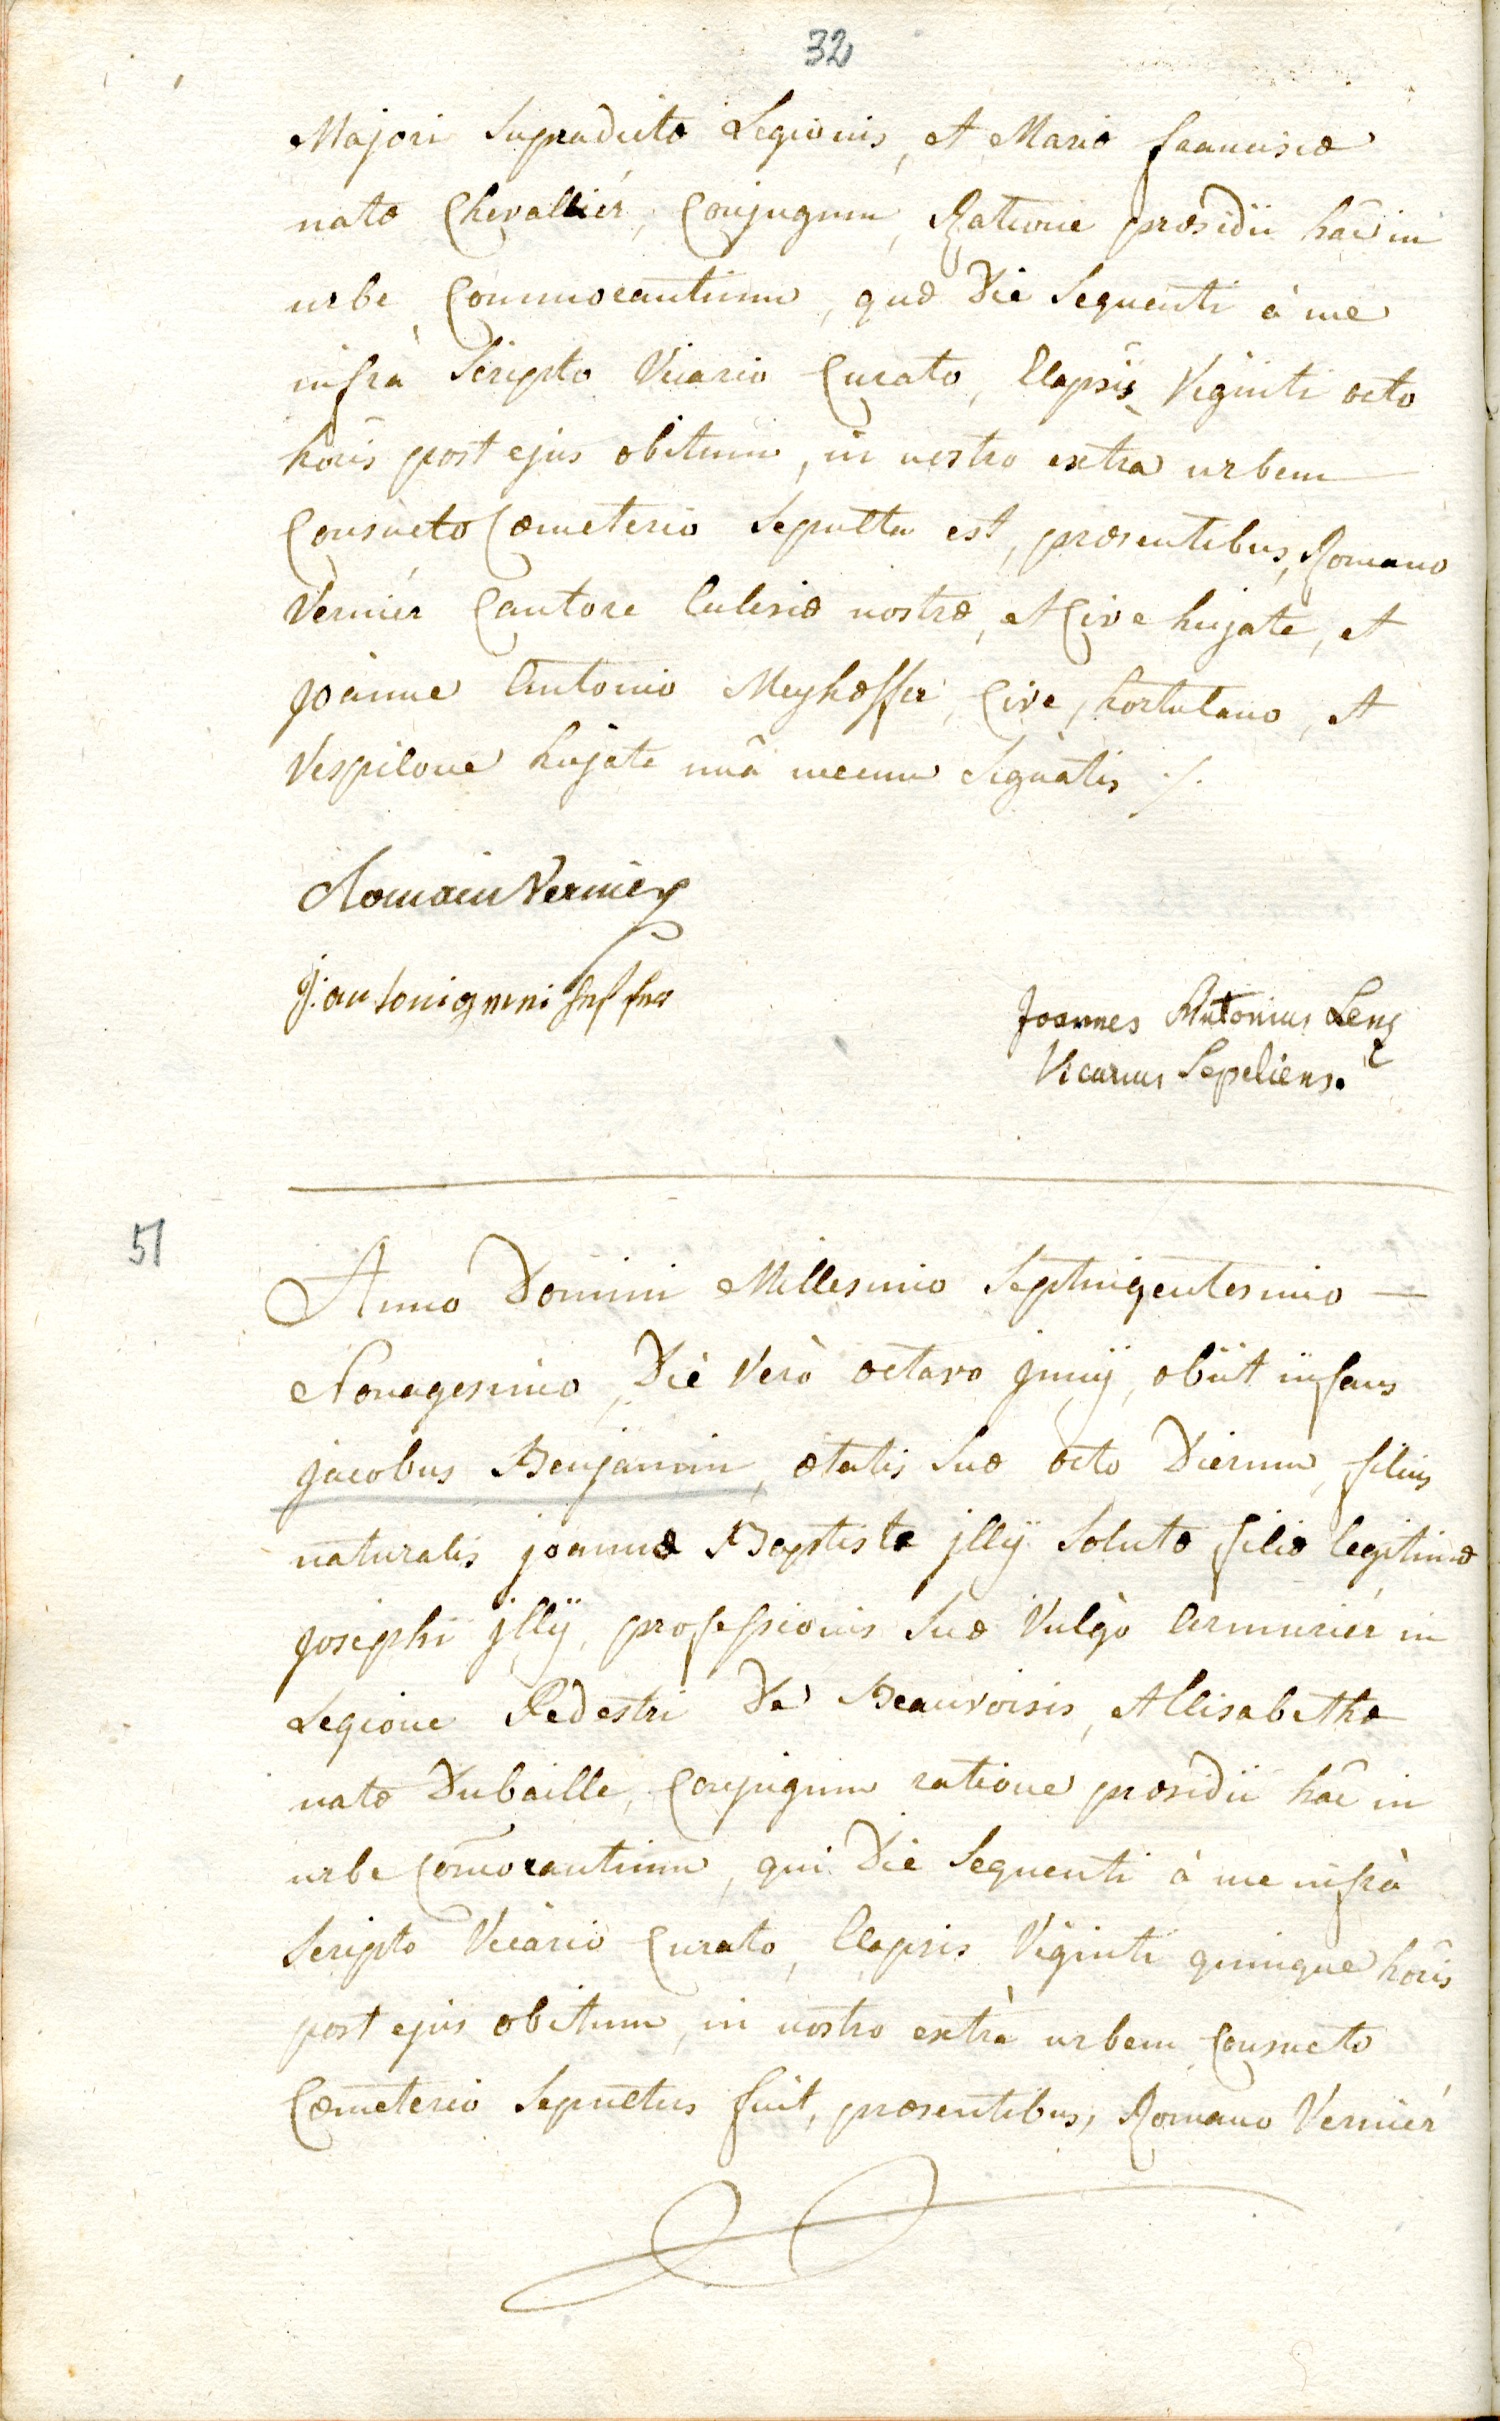 32
Majori Supradictæ Legionis, et Mariæ franciscæ
natæ Chevallier, Conjugum, Ratione præsidii hâc in
urbe Commorantium, quæ Die Sequenti à me
infrà Scripto Vicario Curato, Elapsis Viginti octo
horis post ejus obitum, in nostro extra urbem
Consueto Cœmeterio Sepulta est, præsentibus, Romano
Vernier Cantore Eclesiæ nostræ, et Cive hujate, et
Joanne Antonio Meyhoffer, Cive, hortulano, et
Vespilone hujate unà mecum Signatis ./.
Romain Vernier
J: antoni meni
Joannes Antonius Lenz
Vicarius Sepeliens.
51
Anno Domini Millesimo Septingentesimo —
Nonagesimo, Die Verò octavo Junij, obiit infans
Jacobus Benjamin, ætatis Suæ octo Dierum, filius
naturalis joannæ Baptistæ jllÿ Solutæ filiæ legitimæ
Josephi jllÿ, professionis Suæ Vulgò Armurier in
Legione Pedestri De Beauvoisis, et Elisabethæ
natæ Dubaille, Conjugum ratione præsidii hâc in
urbe Com̄orantium, qui Die Sequenti à me infrà
Scripto Vicario Curato, Elapsis Viginti quinque horis
post ejus obitum, in nostro extrà urbem Consueto
Cœmeterio Sepultus fuit, præsentibus, Romano Vernier